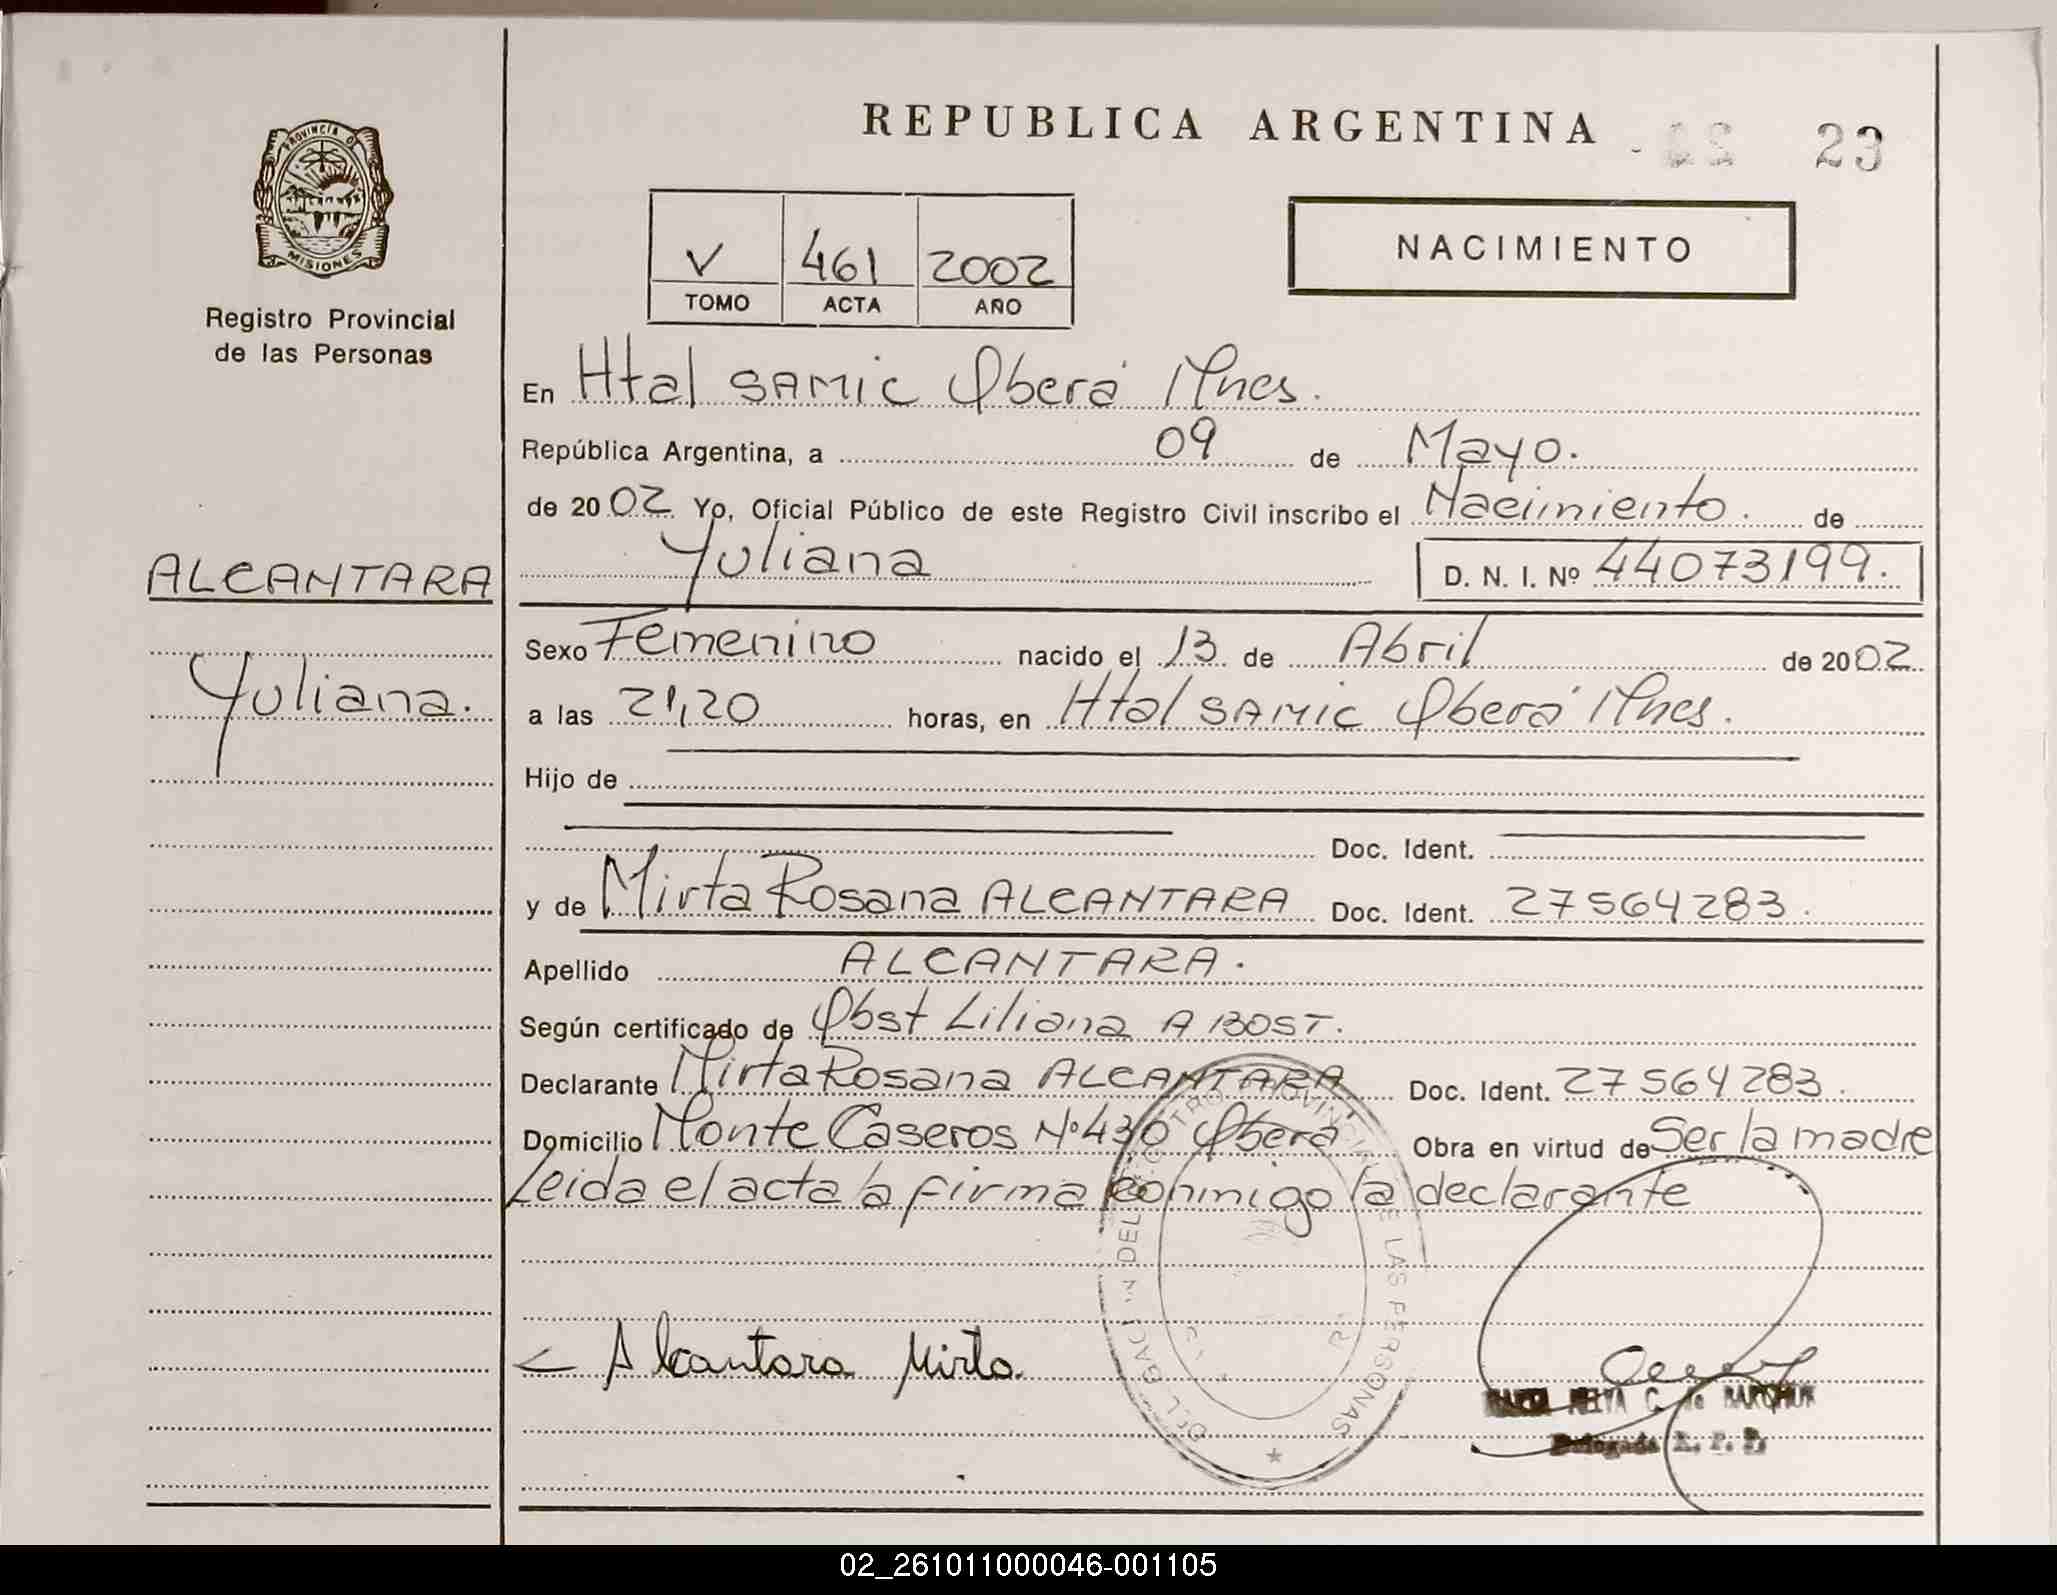 REPUBLICA ARGENTINA
23
PROVINCIA D
MISIONES
Registro Provincial
de las Personas
V 461 2002
TOMO ACTA AÑO
NACIMIENTO
En Htal SAMIC Oberá Mnes.
República Argentina, a 09 de Mayo.
de 2002 Yo, Oficial Público de este Registro Civil inscribo el Nacimiento. de
Yuliana D. N. I. Nº 44073199.
ALCANTARA
Yuliana.
Sexo Femenino nacido el 13 de Abril de 2002
a las 21,20 horas, en Htal SAMIC Oberá Mnes.
Hijo de
Doc. Ident.
y de Mirta Rosana ALCANTARA Doc. Ident. 27564283.
Apellido ALCANTARA.
Según certificado de Obst Liliana A BOST.
Declarante Mirta Rosana ALCANTARA Doc. Ident. 27564283.
Domicilio Monte Caseros Nº 430 Oberá Obra en virtud de Ser la madre
Leida el acta la firma conmigo la declarante
DEL REGISTRO PROVINCIAL DE LAS PERSONAS
Alcantara Mirta.
C. de BARCHUK
Delegada R. P. P.
02_261011000046-001105